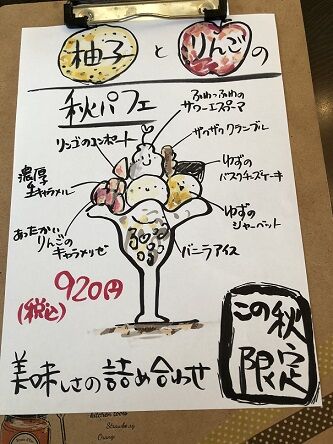 柚子とりんごの
秋パフェ
ふわっふわの
サワーエスプーマ
リンゴのコンポート
ザクザククランブル
濃厚
生キャラメル
ゆずの
バスクチーズケーキ
ゆずの
シャーベット
あったかい
りんごの
キャラメリゼ
バニラアイス
920円
(税込)
この秋
限定
美味しさの詰め合わせ
kitchen tools
Strawberry
Orange